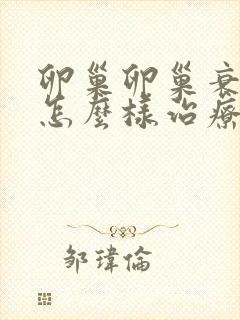 卵巢卵巢衰
怎麼樣治療
邹瑋倫